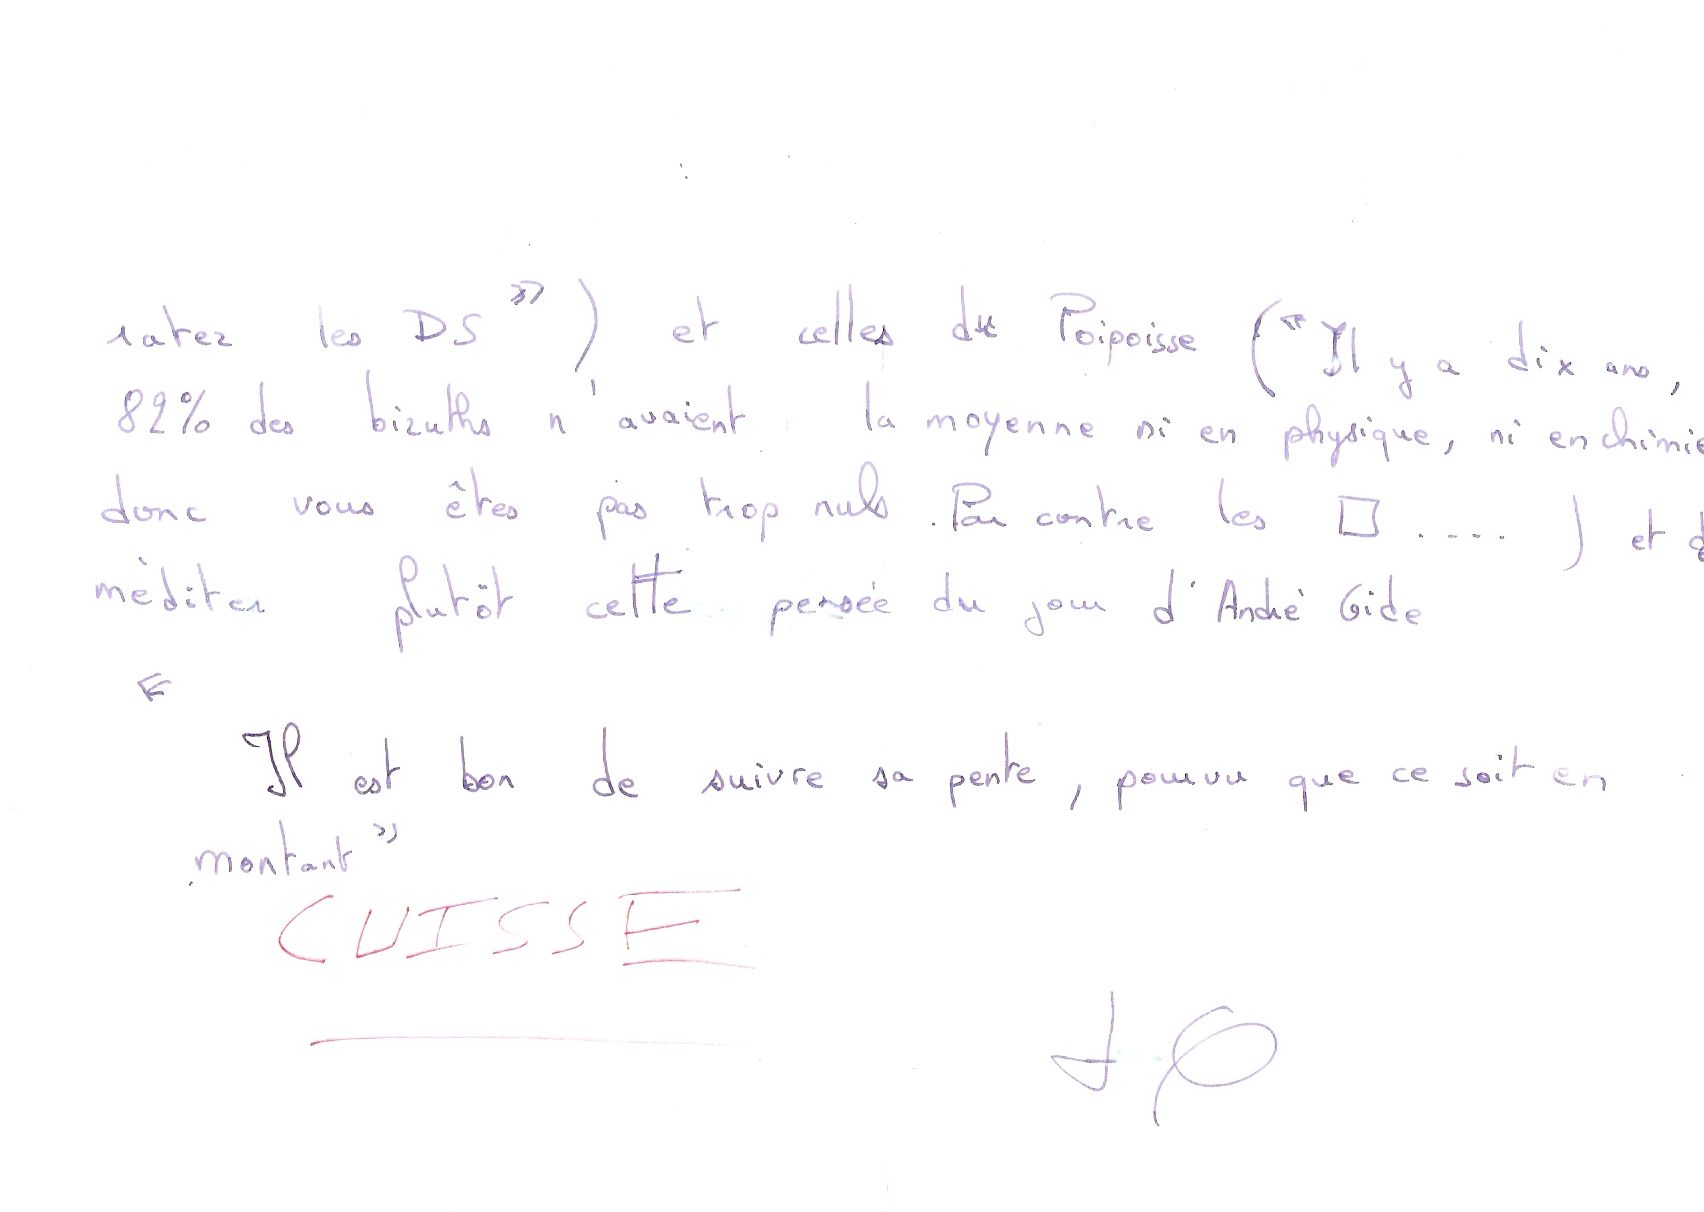 ratez les DS ») et celles de Poipoisse ("Il y a dix ans,
82% des bizuths n'avaient la moyenne ni en physique, ni en chimie
donc vous êtes pas trop nuls. Par contre les □ .....) et d
méditer plutôt cette pensée du jour d'André Gide
«
Il est bon de suivre sa pente, pourvu que ce soit en
montant »
CUISSE